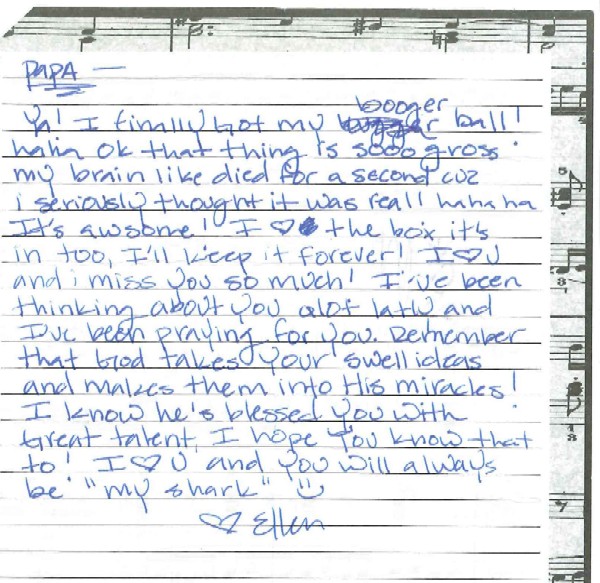 PAPA —
booger
Ya! I finally got my bugger ball!
haha ok that thing is sooo gross.
my brain like died for a second cuz
i seriously thought it was real! hahaha
It's awsome! I ♡ the box it's
in too, I'll keep it forever! I ♡ U
and i miss you so much! I've been
thinking about you alot latly and
I've been praying for you. Remember
that God takes your swell ideas
and makes them into His miracles!
I know he's blessed you with
Great talent, I hope you know that
to! I ♡ U and you will always
be "my shark" ☺
♡ Ellen